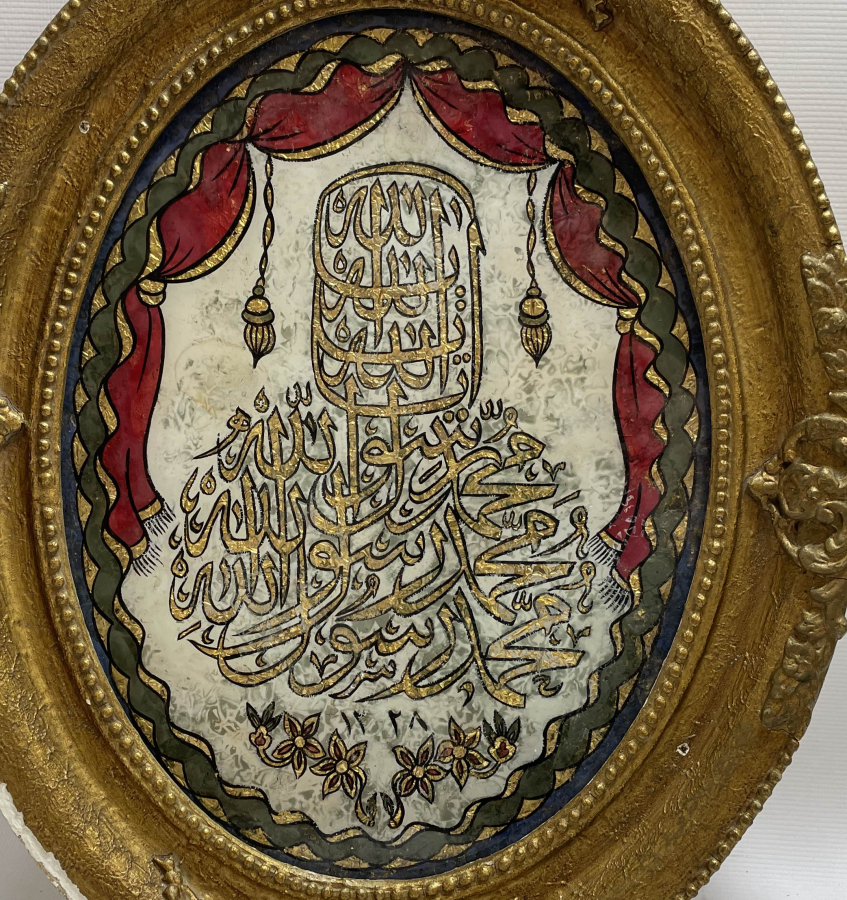 يا الله
يا الله
يا الله
محمد رسول الله
محمد رسول الله
محمد رسول الله
١٣٢٨